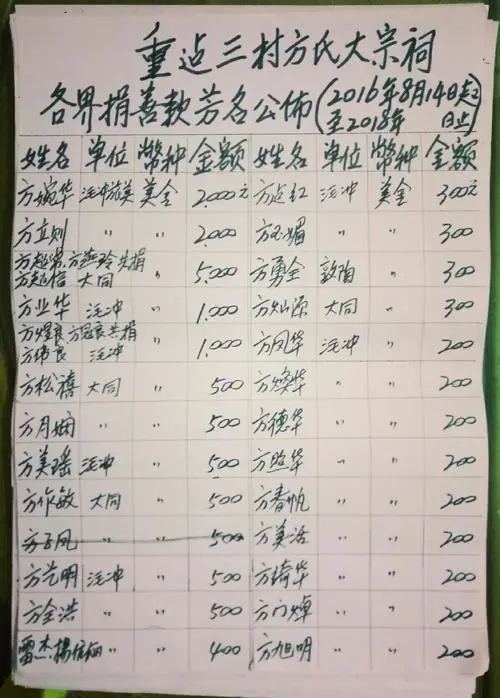 重点三村方氏大宗祠
各界捐善款芳名公佈(2016年8月14日起
至2018年 日止)
姓名 单位 幣种 金额 姓名 单位 幣种 金额
方婉华 汦冲旅美 美金 2,000元 方点红 汦冲 美金 300元
方立则 〃 〃 2,000 方玉媚 〃 〃 300
方燕玲共捐
大同 〃 5,000 方勇全 敦陶 〃 300
方业华 汦冲 〃 1,000 方灿源 大同 〃 300
方煜良 方思良共捐
方伟良 汦冲 〃 1,000 方凤华 汦冲 〃 200
方松禧 大同 〃 500 方焕华 〃 〃 200
方月娴 〃 〃 500 方德华 〃 〃 200
方美瑶 汦冲 〃 500 方照华 〃 〃 200
方作敏 大同 〃 500 方春帆 〃 〃 200
方子凤 〃 〃 500 方美活 〃 〃 200
方羌明 汦冲 〃 500 方绮华 〃 〃 200
方全浩 〃 〃 500 方门焯 〃 〃 200
雷杰 〃 〃 400 方旭明 〃 〃 200